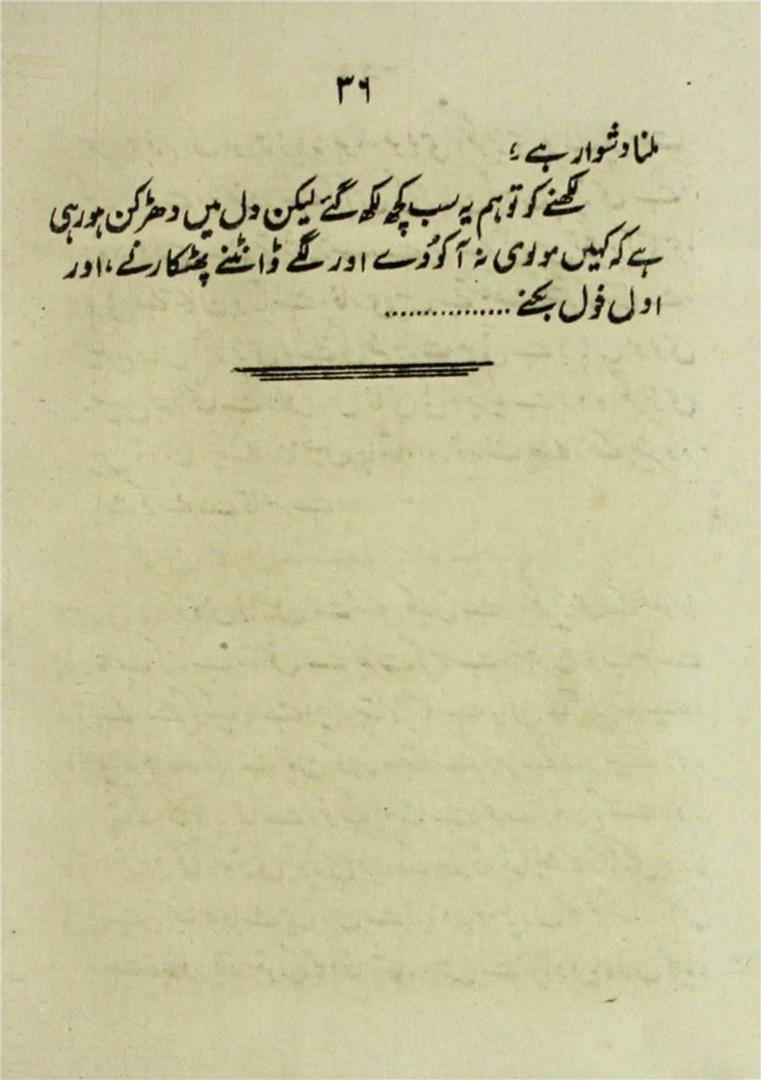 ۳۶
ملنا دشوار ہے؛
لکھنے کو تو ہم یہ سب کچھ لکھ گئے لیکن دل میں دھڑکن ہو رہی
ہے کہ کہیں مولوی نہ آ کودے اور لگے ڈانٹنے پھٹکارنے، اور
اول فول بکنے ...............